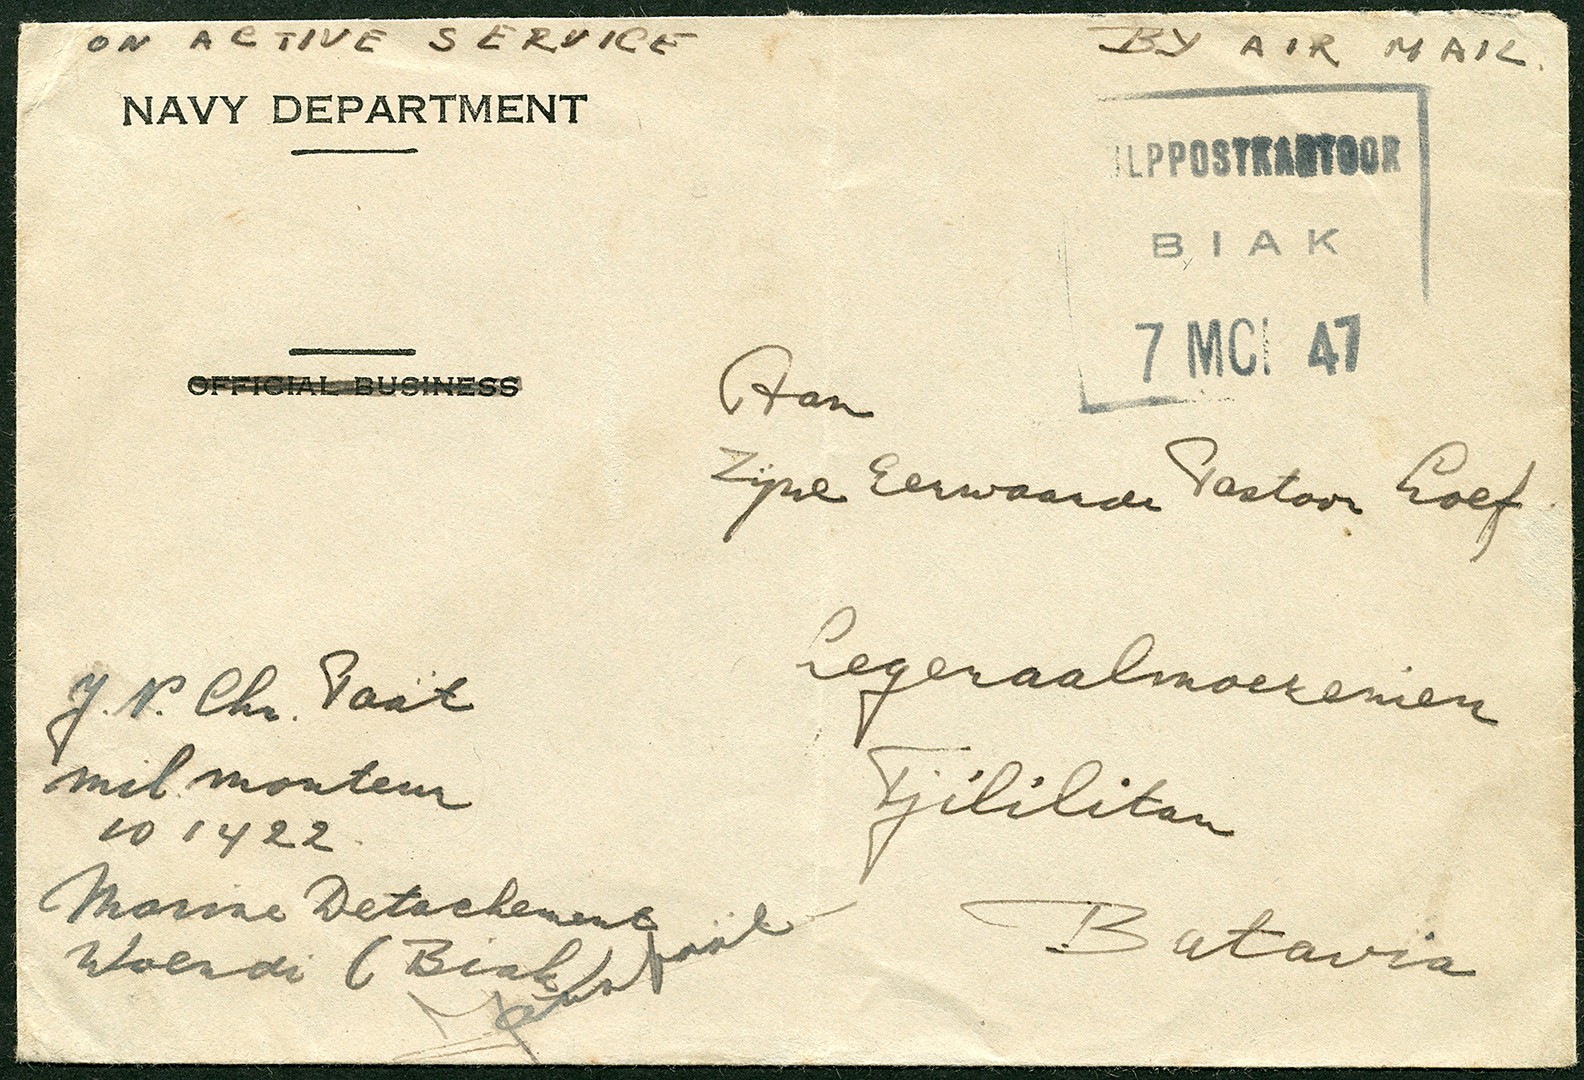 ON ACTIVE SERVICE
BY AIR MAIL.
NAVY DEPARTMENT
LPPOSTKANTOOR
BIAK
7 MCI 47
OFFICIAL BUSINESS
Aan
Zijne Eerwaarde Pastoor Loef
Legeraalmoezenier
Tjililitan
Batavia
J. N. Chr. Taät
mil. monteur
10 1422.
Marine Detachement
Woendi (Biak)